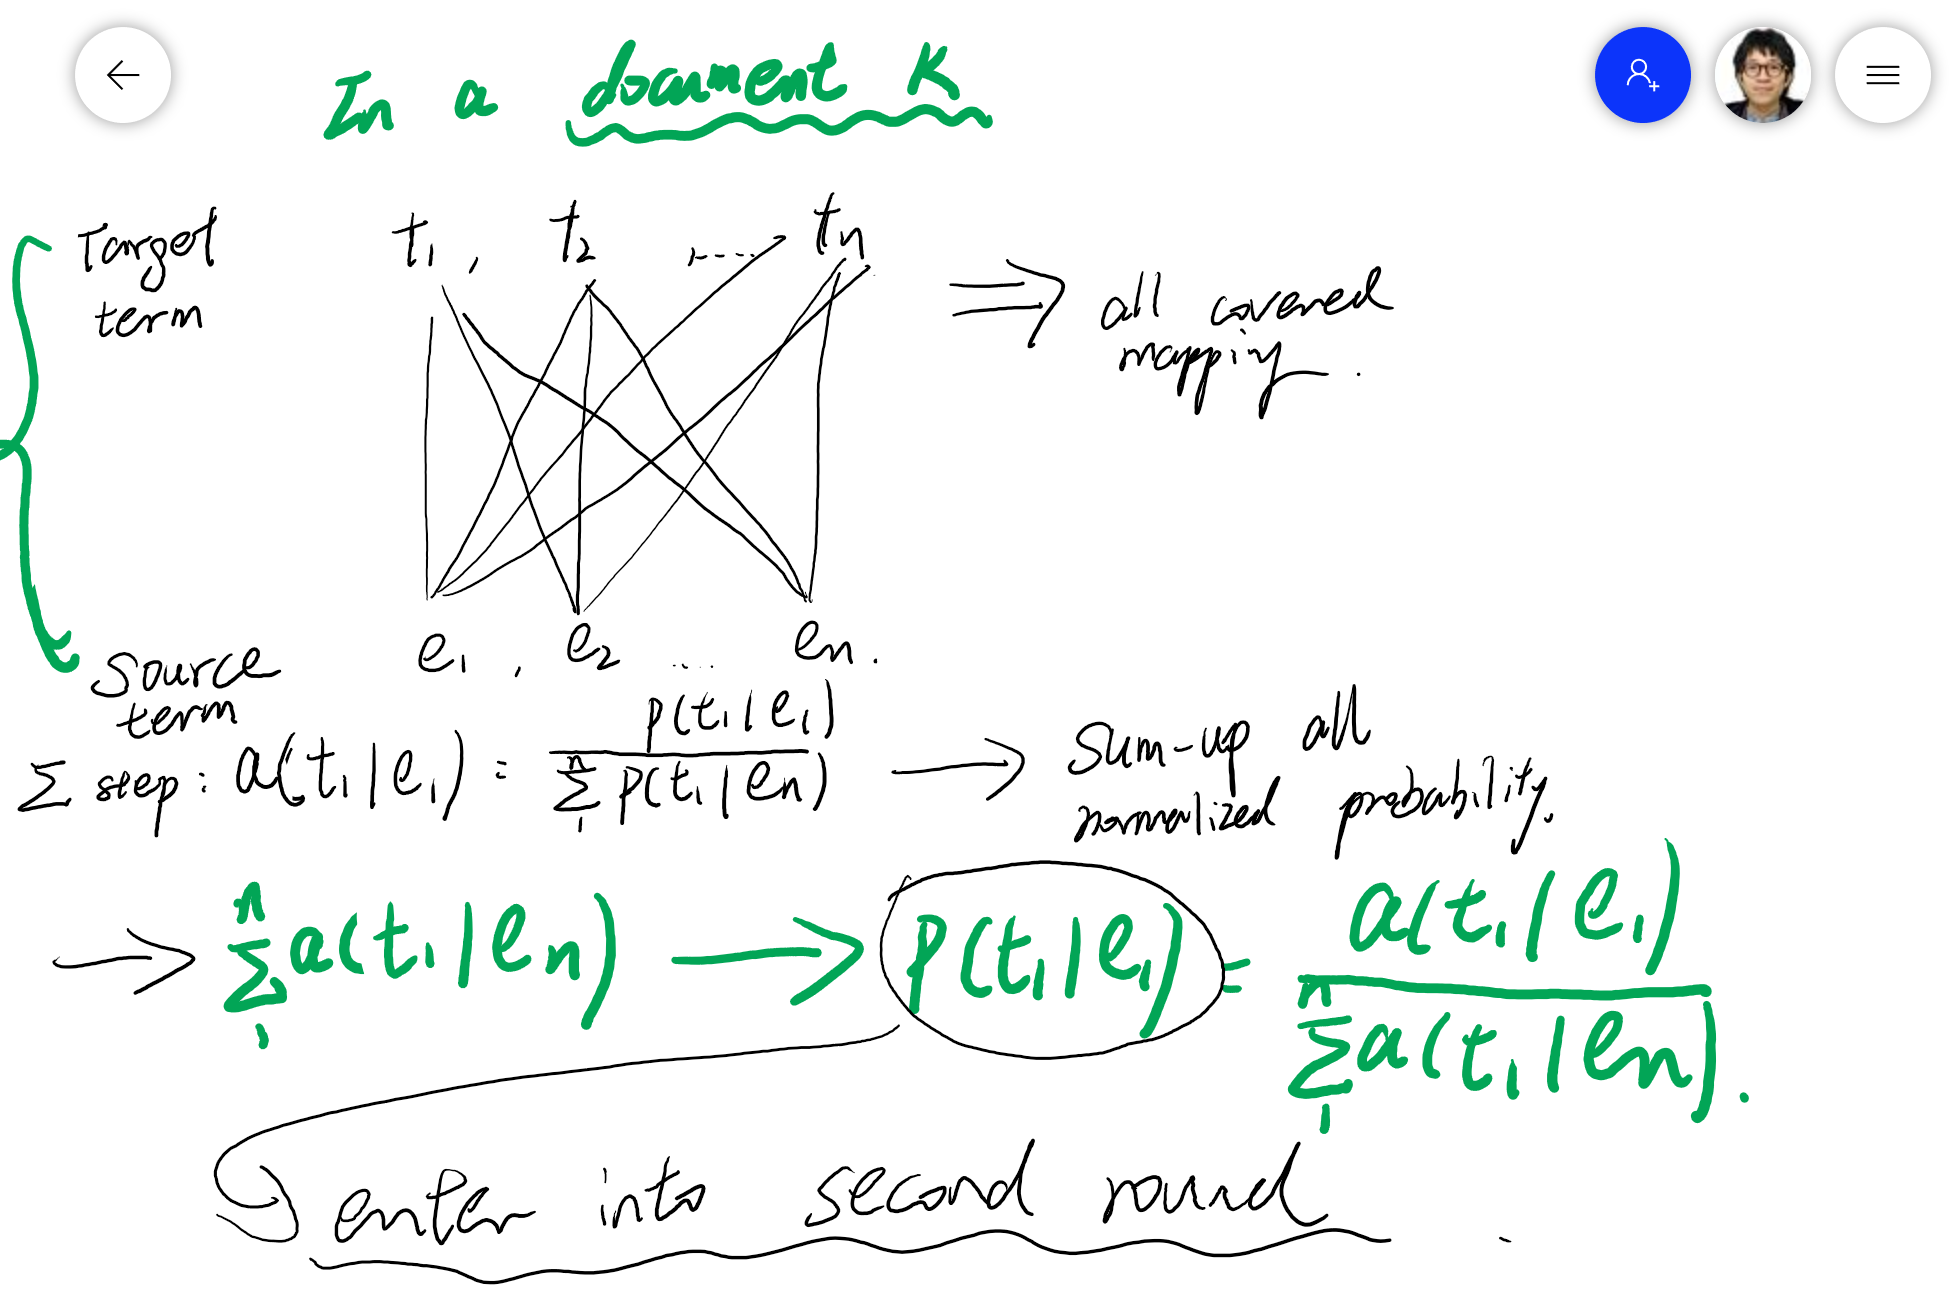 In a document K
Target term
t1 , t2 ..... tn
⇒ all covered mapping .
Source term
e1 , e2 .... en .
Σ step : a(t1 | e1) = p(t1 | e1) / Σ_1^n p(t1 | en) → sum-up all normalized probability.
→ Σ_1^n a(t1 | en) → P(t1 | e1) = a(t1 | e1) / Σ_1^n a(t1 | en) .
enter into second round .